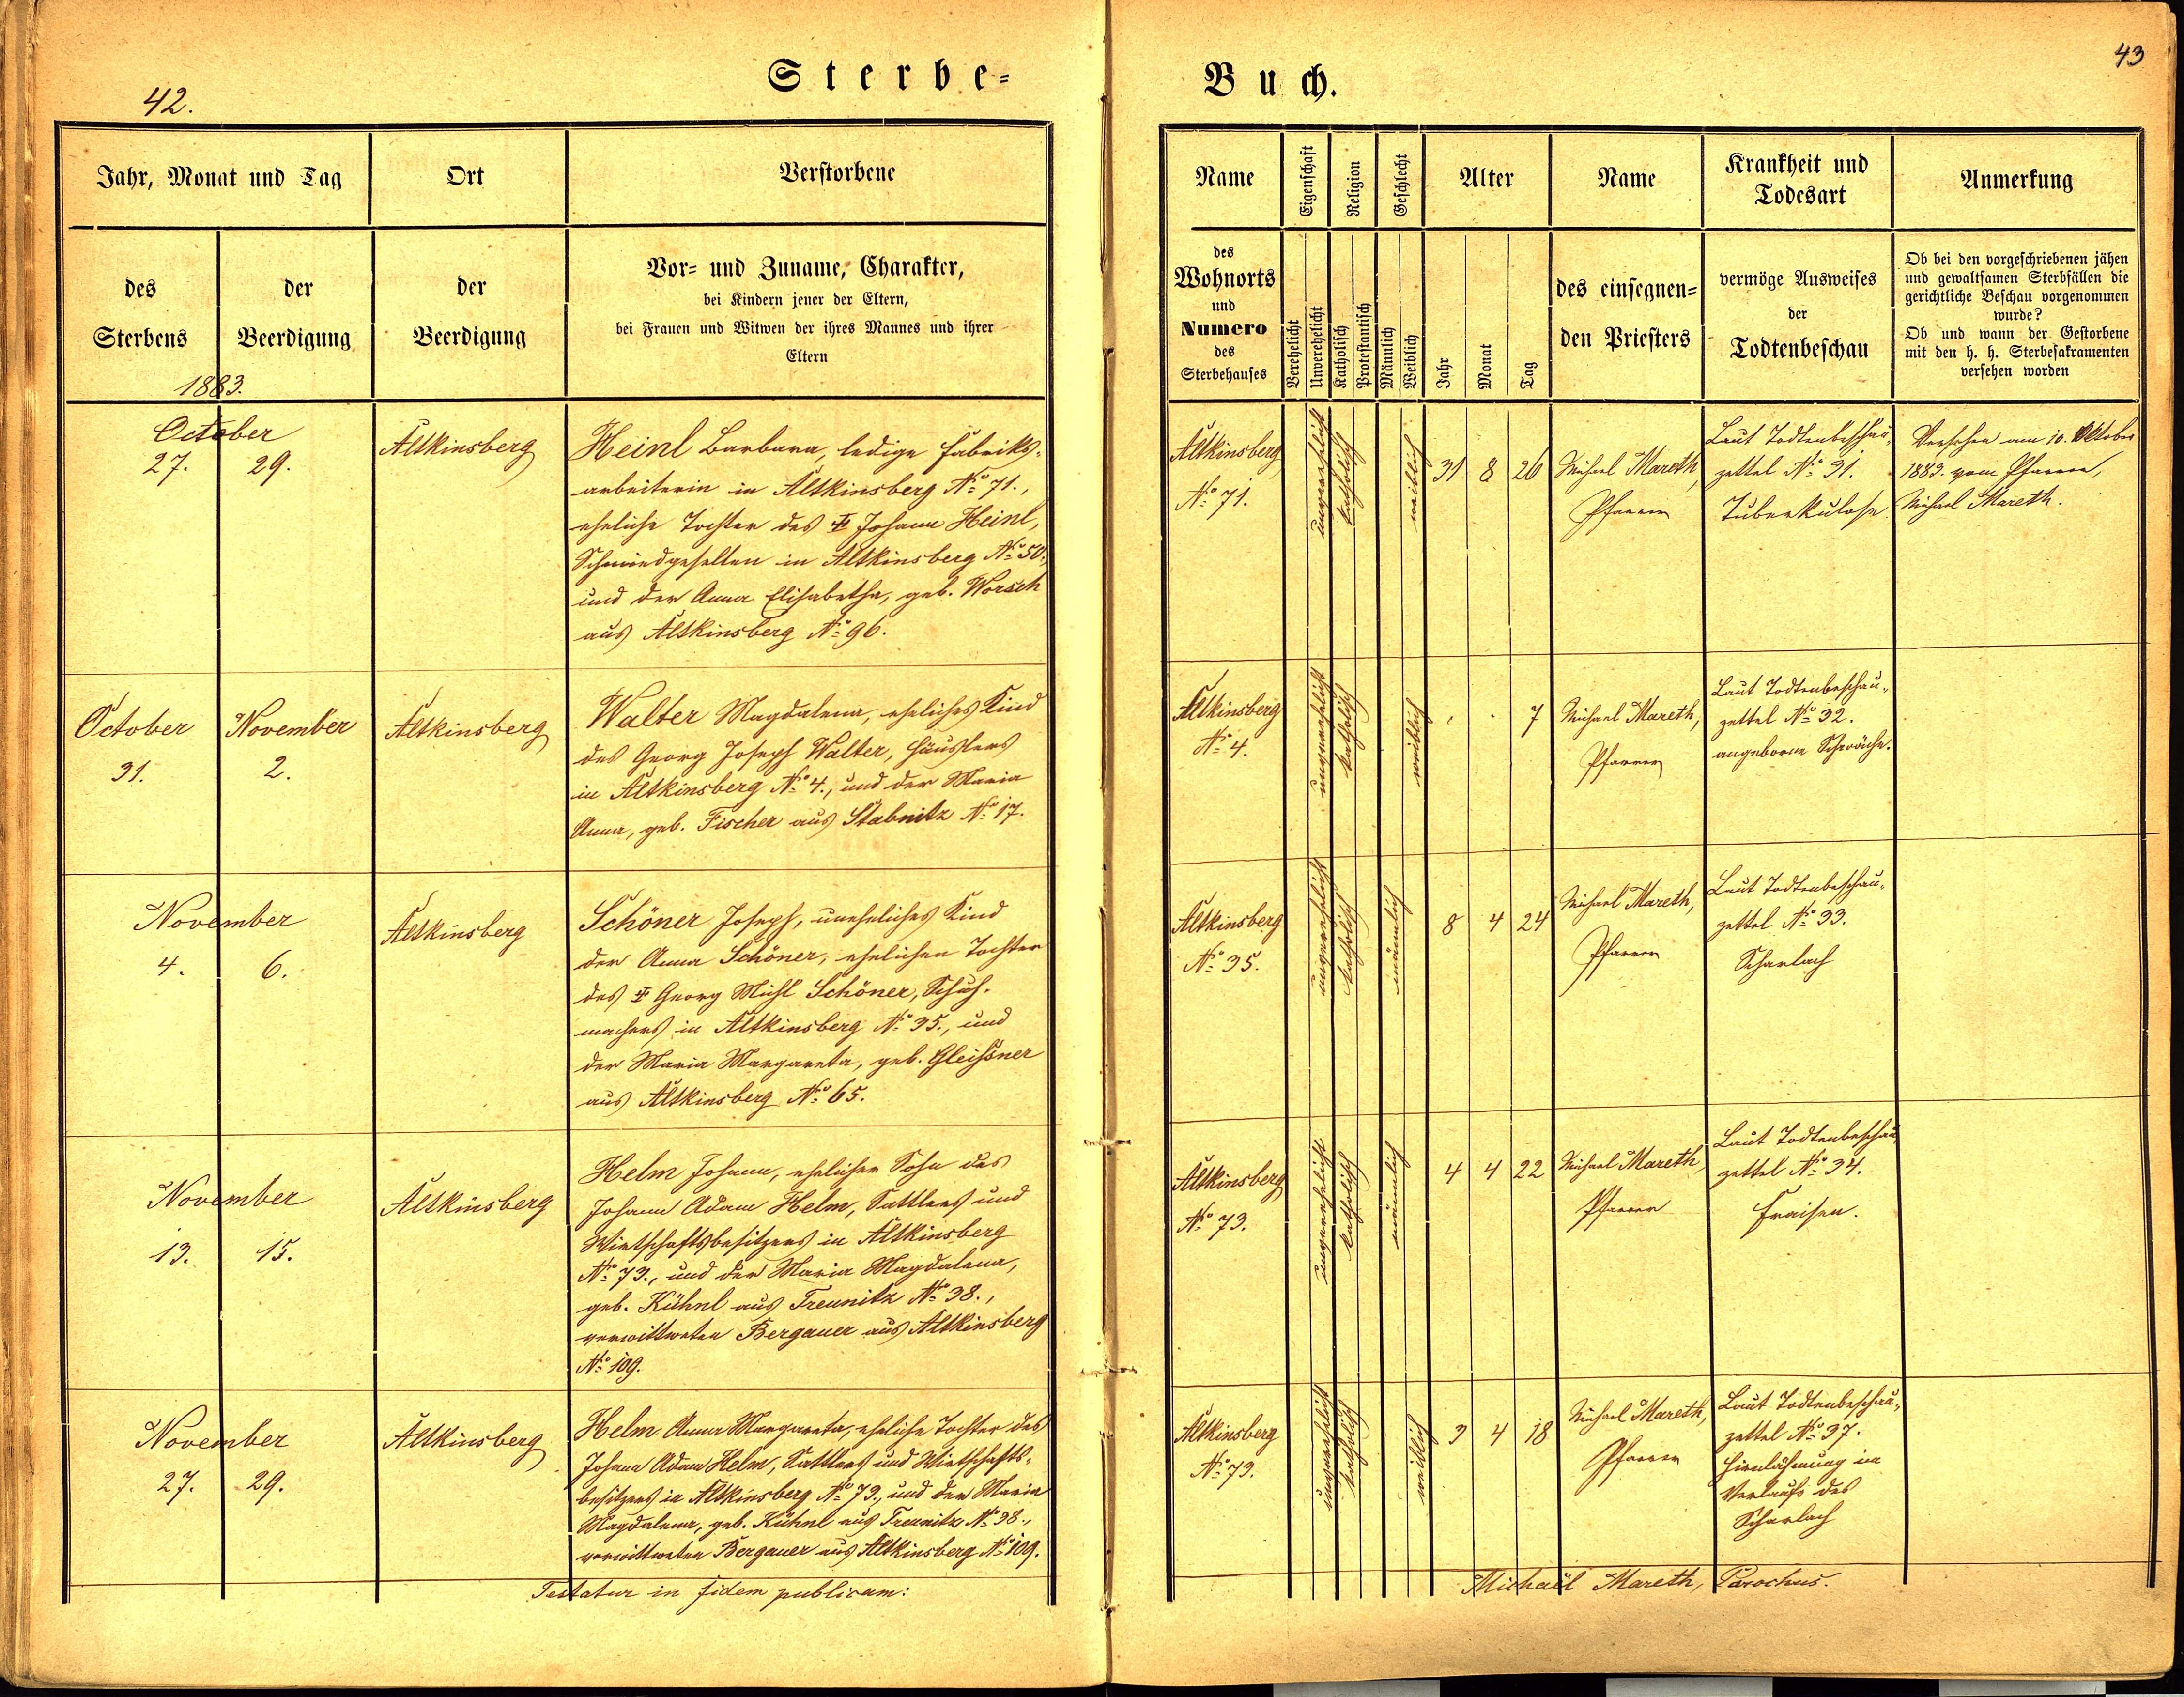 42.
Sterbe=
Jahr, Monat und Tag
Ort
Verstorbene
des
Sterbens
der
Beerdigung
der
Beerdigung
Vor= und Zuname, Charakter,
bei Kindern jener der Eltern,
bei Frauen und Witwen der ihres Mannes und ihrer
Eltern
1883.
October
27. 29.
Altkinsberg
Heinl Barbara, ledige Fabriks-
arbeiterin in Altkinsberg No 71.,
eheliche Tochter des Johann Heinl,
Schmiedgesellen in Altkinsberg No 50.,
und der Anna Elisabetha, geb. Worsch
aus Altkinsberg No 96.
October November
31. 2.
Altkinsberg
Walter Magdalena, eheliches Kind
des Georg Joseph Walter, Häuslers
in Altkinsberg No 4., und der Maria
Anna, geb. Fischer aus Stabnitz No 17.
November
4. 6.
Altkinsberg
Schöner Joseph, uneheliches Kind
der Anna Schöner, ehelichen Tochter
des Georg Michl Schöner, Schuh-
machers in Altkinsberg No 35., und
der Maria Margareta, geb. Gleißner
aus Altkinsberg No 65.
November
13. 15.
Altkinsberg
Helm Johann, ehelicher Sohn des
Johann Adam Helm, Sattlers und
Wirtschaftsbesitzers in Altkinsberg
No 73., und der Maria Magdalena,
geb. Kühnl aus Treunitz No 38.,
verwittweten Bergauer aus Altkinsberg
No 109.
November
27. 29.
Altkinsberg
Helm Anna Margareta, eheliche Tochter des
Johann Adam Helm, Sattlers und Wirtschafts-
besitzers in Altkinsberg No 73., und der Maria
Magdalena, geb. Kühnl aus Treunitz No 38.,
verwittweten Bergauer aus Altkinsberg No 109.
Testatur in fidem publicam:
43
Buch.
Name
Eigenschaft
Religion
Geschlecht
Alter
Name
Krankheit und
Todesart
Anmerkung
des
Wohnorts
und
Numero
des
Sterbehauses
Verehelicht
Unverehelicht
Katholisch
Protestantisch
Männlich
Weiblich
Jahr
Monat
Tag
des einsegnen=
den Priesters
vermöge Ausweises
der
Todtenbeschau
Ob bei den vorgeschriebenen jähen
und gewaltsamen Sterbfällen die
gerichtliche Beschau vorgenommen
wurde?
Ob und wann der Gestorbene
mit den h. h. Sterbesakramenten
versehen worden
Altkinsberg
No 71.
unverehelicht
katholisch
weiblich
31 8 26
Michael Mareth,
Pfarrer
Laut Todtenbeschau-
zettel No 31.
Tuberkulose.
Versehen am 10. Oktober
1883. vom Pfarrer,
Michael Mareth.
Altkinsberg
No 4.
unverehelicht
katholisch
weiblich
7
Michael Mareth,
Pfarrer
Laut Todtenbeschau-
zettel No 32.
angeborne Schwäche.
Altkinsberg
No 35.
unverehelicht
katholisch
männlich
8 4 24
Michael Mareth,
Pfarrer
Laut Todtenbeschau-
zettel No 33.
Scharlach
Altkinsberg
No 73.
unverehelicht
katholisch
männlich
4 4 22
Michael Mareth
Pfarrer
Laut Todtenbeschau-
zettel No 34.
Fraisen.
Altkinsberg
No 73.
unverehelicht
katholisch
weiblich
3 4 18
Michael Mareth,
Pfarrer
Laut Todtenbeschau-
zettel No 37.
Hirnlähmung im
Verlaufe des
Scharlach
Michaël Mareth, Parochus.